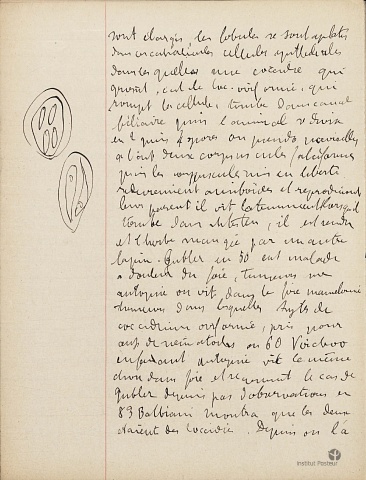 sont élargis, les lobules se sont aplatis
dans ces cellules épithéliales
dans lesquelles une coccidie qui
grossit, est de loc. oviforme, qui
rompt les cellules, tombe dans canal
biliaire puis l'animal se divise
en 2 puis 4 spores ou pseudo navicelles
a l'int deux corpuscules falciformes
puis les corpuscules mis en liberté
redeviennent amiboïdes et reproduisent
leur parent il vit lorsqu'il
tombe dans intestin, il est rendu
et l'herbe mangée par un autre
lapin. Gubler en 58 eut malade
a douleur du foie, tumeurs une
autopsie on vit dans le foie mamelonné
tumeurs dans lesquelles kystes de
coccidium oviforme, pris pour
œufs de nématodes en 60 Virchow
enfant autopsie vit la même
chose dans foie et reconnut le cas de
Gubler depuis pas d'observations en
89 Balbiani montra que les deux
étaient des coccidies. Depuis on l'a
Institut Pasteur